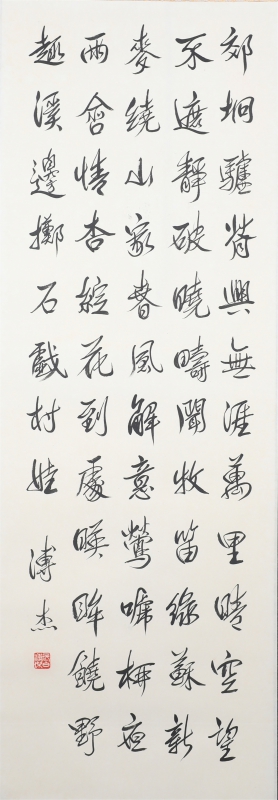 郊坰驢背興無涯萬里晴空望
不遮靜破曉疇聞牧笛綠蘇新
麥繞山家春風解意鶯啼柳夜
雨含情杏綻花到處暎眸饒野
趣溪邊擲石戲村娃
溥杰